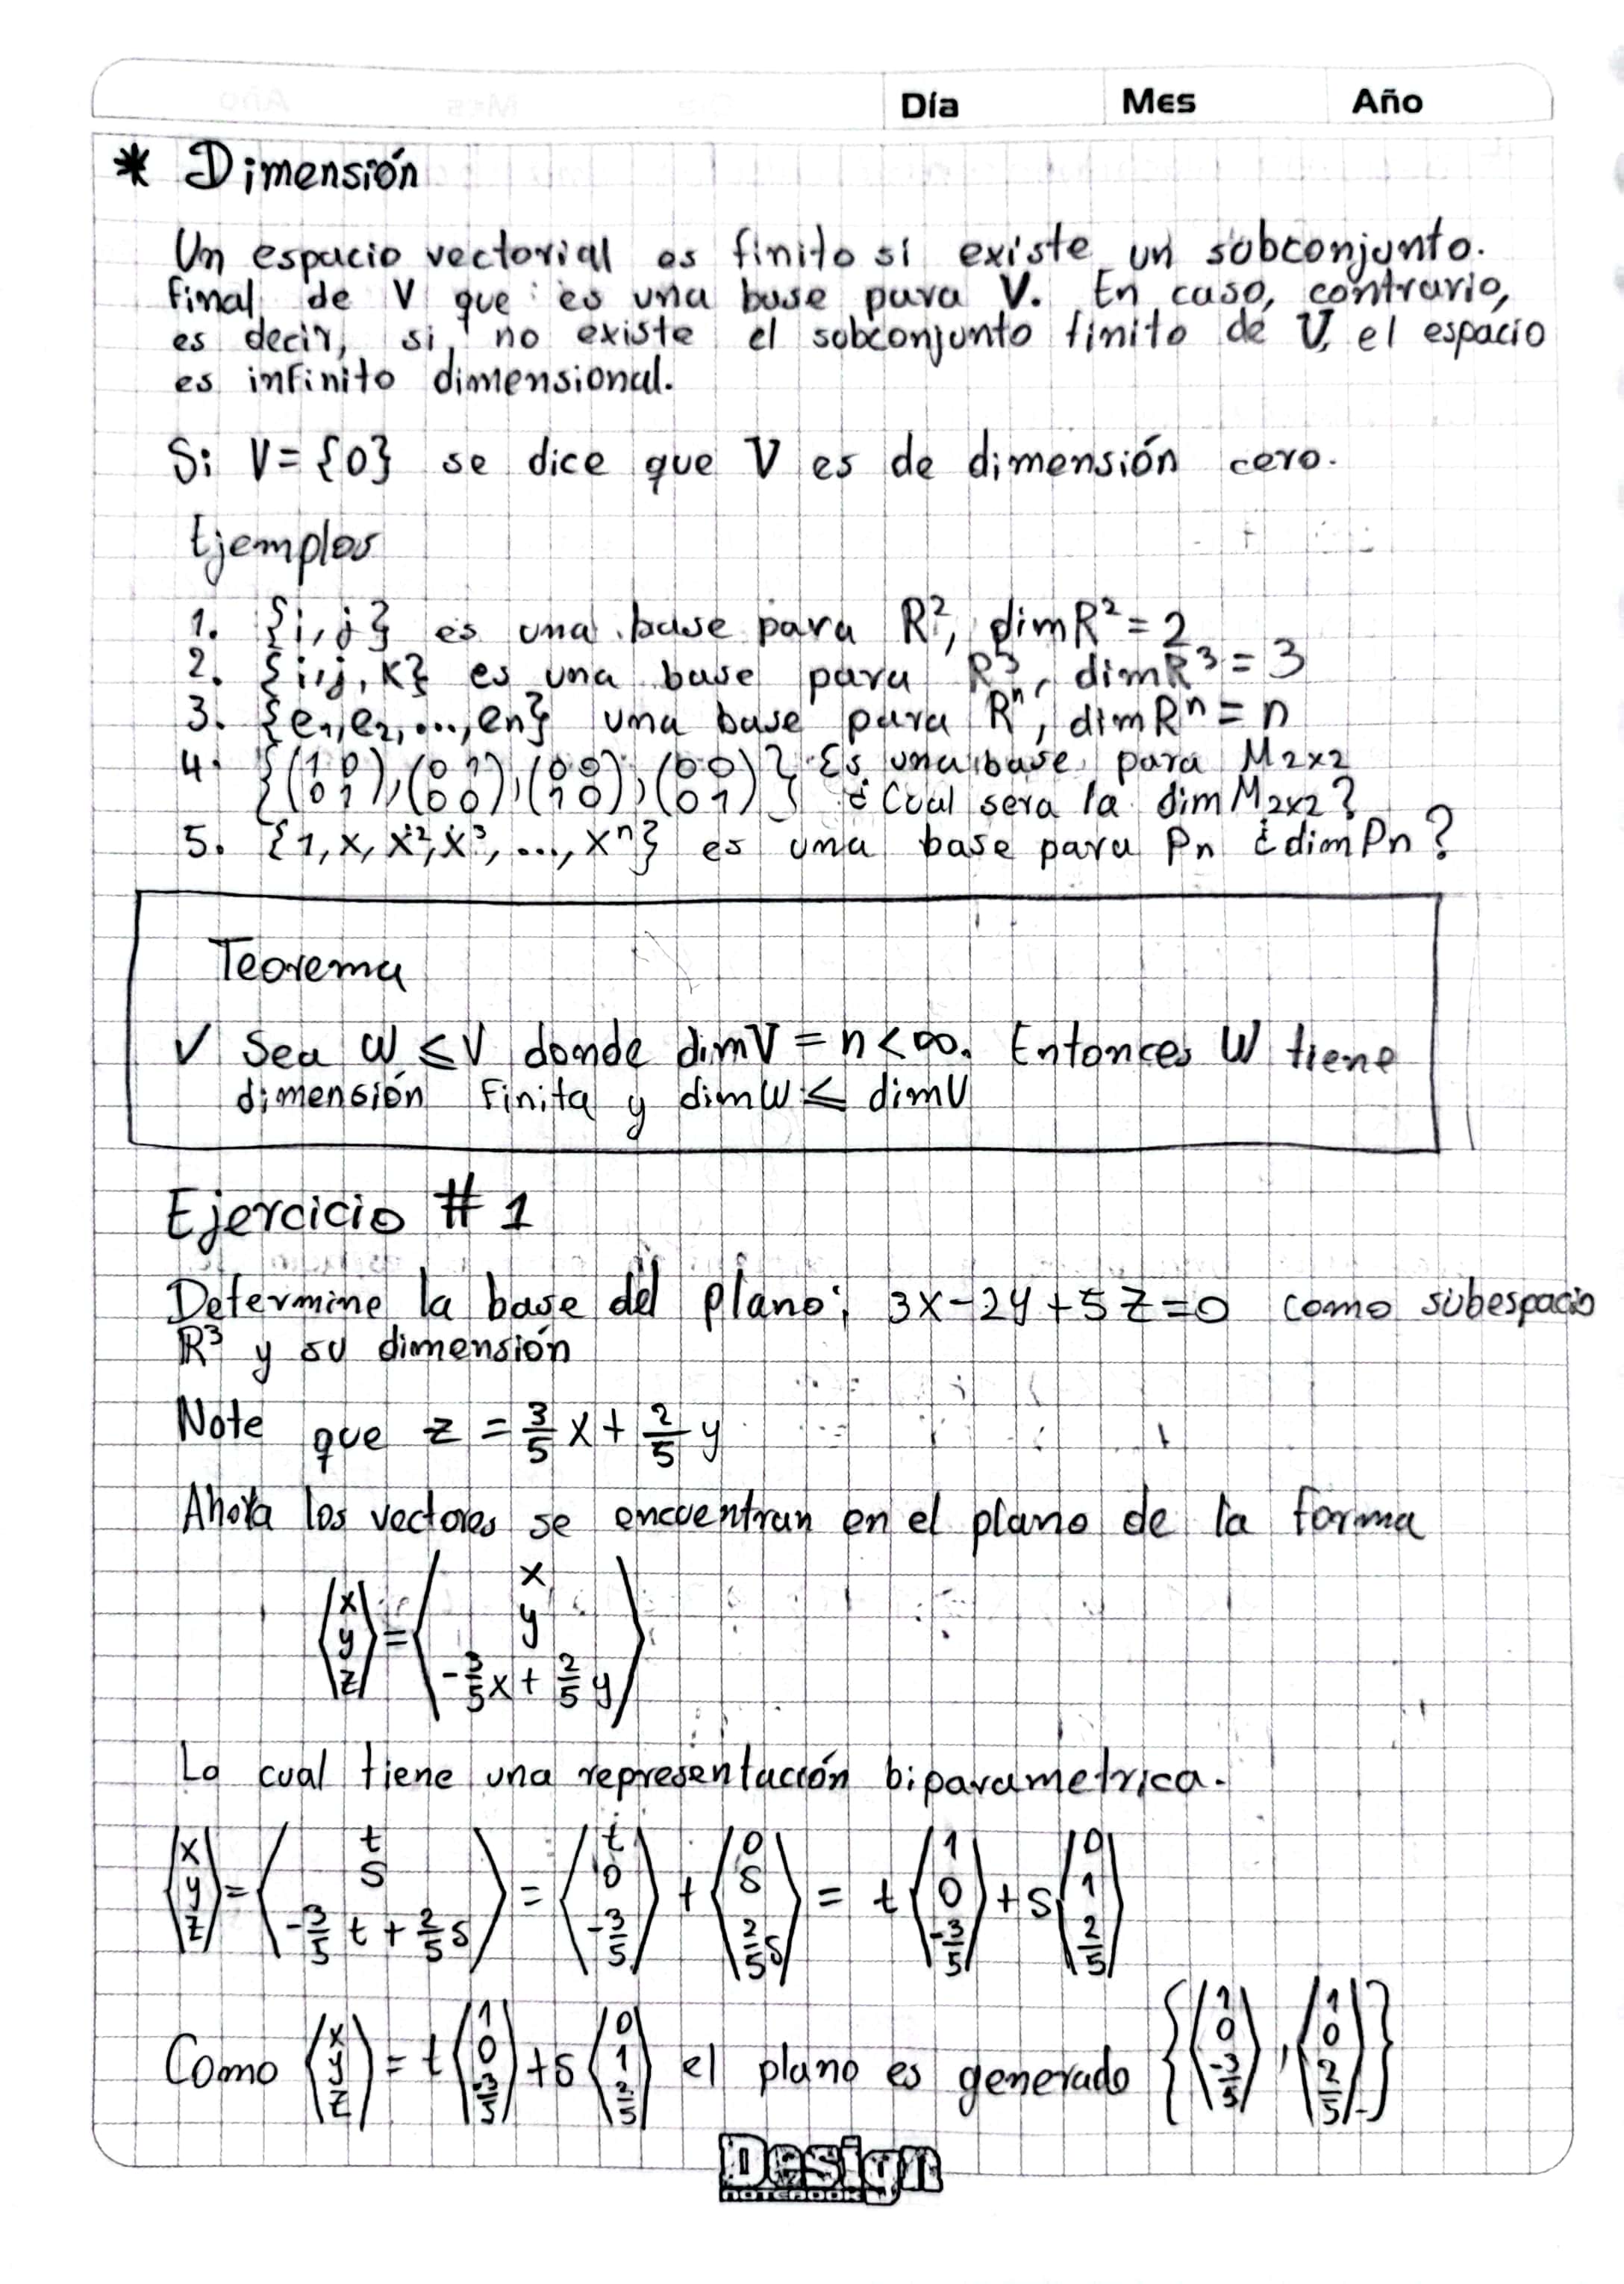 Día Mes Año
* Dimensión
Un espacio vectorial es finito si existe un subconjunto.
final de V que es una base para V. En caso, contrario,
es decir, si no existe el subconjunto finito de V, el espacio
es infinito dimensional.
Si V = {0} se dice que V es de dimensión cero.
Ejemplos
1. {i, j} es una base para R², dim R² = 2
2. {i, j, K} es una base para R³, dim R³ = 3
3. {e₁, e₂, ..., en} una base para Rⁿ, dim Rⁿ = n
4. {(1 0; 0 1), (0 1; 0 0), (0 0; 1 0), (0 0; 0 1)} Es una base para M₂ₓ₂
¿Cual sera la dim M₂ₓ₂?
5. {1, x, x², x³, ..., xⁿ} es una base para Pn ¿dim Pn?
Teorema
✓ Sea W ≤ V donde dim V = n < ∞. Entonces W tiene
dimensión Finita y dim W ≤ dim V
Ejercicio # 1
Determine la base del plano; 3x - 2y + 5z = 0 como subespacio
R³ y su dimensión
Note que z = 3/5 x + 2/5 y
Ahora los vectores se encuentran en el plano de la forma
(x; y; z) = (x; y; -3/5 x + 2/5 y)
Lo cual tiene una representación biparametrica.
(x; y; z) = (t; s; -3/5 t + 2/5 s) = (t; 0; -3/5) + (0; s; 2/5 s) = t (1; 0; -3/5) + s (0; 1; 2/5)
Como (x; y; z) = t (1; 0; -3/5) + s (0; 1; 2/5) el plano es generado {(1; 0; -3/5), (1; 0; 2/5)}
Design
NOTEBOOK